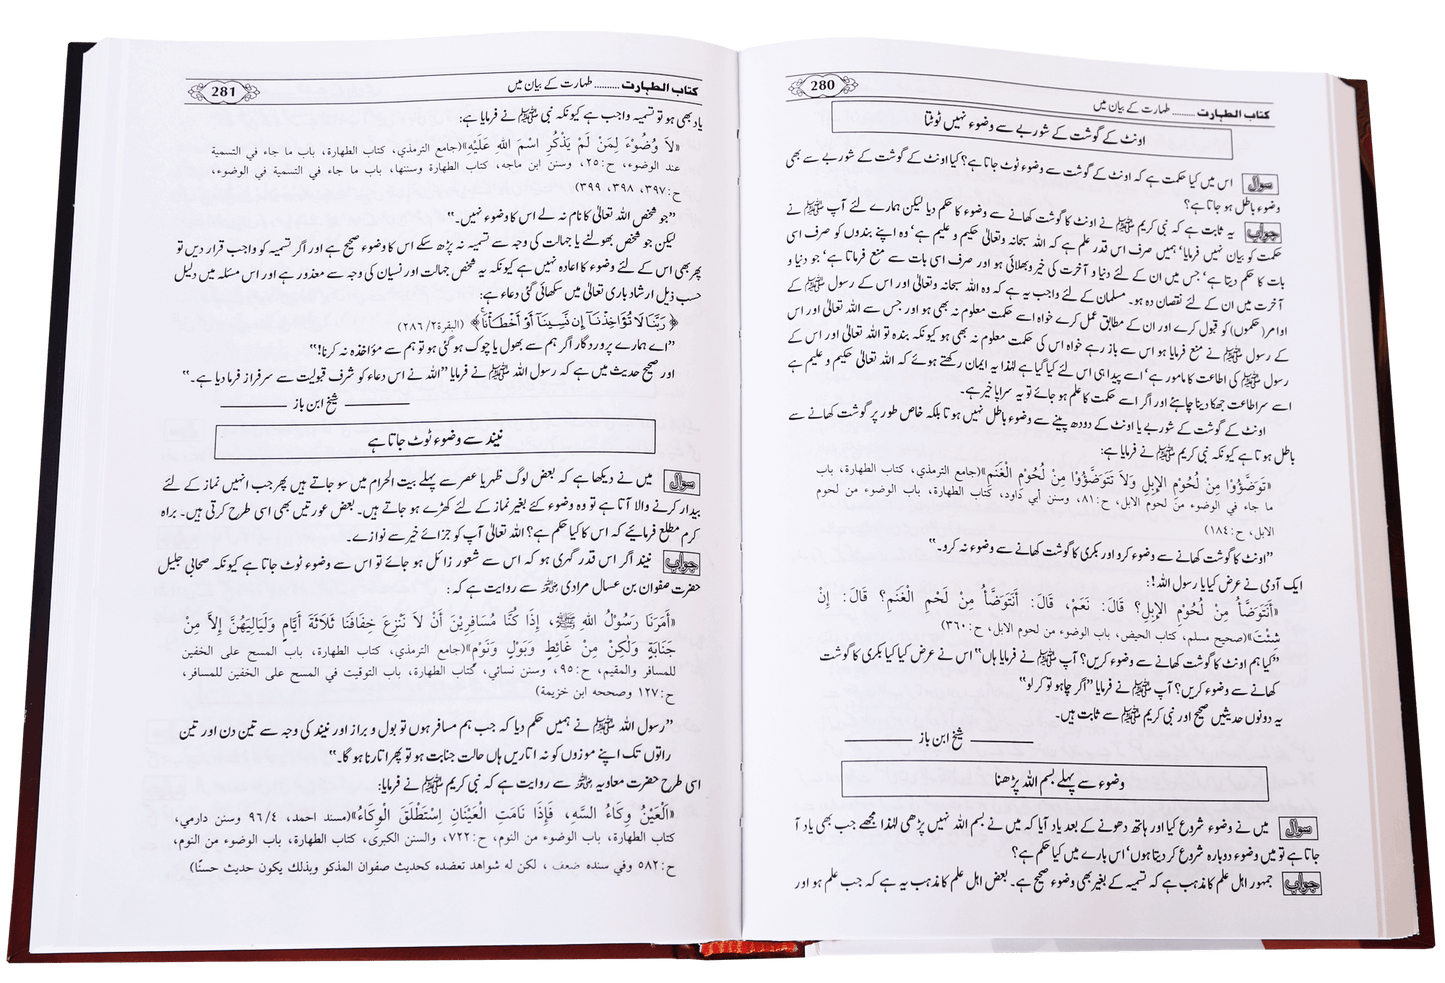 280
کتاب الطہارت .......... طہارت کے بیان میں
اونٹ کے گوشت کے شوربے سے وضوء نہیں ٹوٹتا
سوال اس میں کیا حکمت ہے کہ اونٹ کے گوشت سے وضوء ٹوٹ جاتا ہے؟ کیا اونٹ کے گوشت کے شوربے سے بھی
وضوء باطل ہو جاتا ہے؟
جواب یہ ثابت ہے کہ نبی کریم ﷺ نے اونٹ کا گوشت کھانے سے وضوء کا حکم دیا لیکن ہمارے لئے آپ ﷺ نے
حکمت کو بیان نہیں فرمایا‘ ہمیں صرف اس قدر علم ہے کہ اللہ سبحانہ وتعالیٰ حکیم و علیم ہے‘ وہ اپنے بندوں کو صرف اسی
بات کا حکم دیتا ہے‘ جس میں ان کے لئے دنیا و آخرت کی خیر وبھلائی ہو اور صرف اسی بات سے منع فرماتا ہے‘ جو دنیا و
آخرت میں ان کے لئے نقصان دہ ہو۔ مسلمان کے لئے واجب یہ ہے کہ وہ اللہ سبحانہ وتعالیٰ اور اس کے رسول ﷺ کے
اوامر (حکموں) کو قبول کرے اور ان کے مطابق عمل کرے خواہ اسے حکمت معلوم نہ بھی ہو اور جس سے اللہ تعالیٰ اور اس
کے رسول ﷺ نے منع فرمایا ہو اس سے باز رہے خواہ اس کی حکمت معلوم نہ بھی ہو کیونکہ بندہ تو اللہ تعالیٰ اور اس کے
رسول ﷺ کی اطاعت کا مامور ہے‘ اسے پیدا ہی اس لئے کیا گیا ہے لہٰذا یہ ایمان رکھتے ہوئے کہ اللہ تعالیٰ حکیم و علیم ہے
اسے سر اطاعت جھکا دینا چاہئے اور اگر اسے حکمت کا علم ہو جائے تو یہ سراپا خیر ہے۔
اونٹ کے گوشت کے شوربے یا اونٹ کے دودھ پینے سے وضوء باطل نہیں ہوتا بلکہ خاص طور پر گوشت کھانے سے
باطل ہوتا ہے کیونکہ نبی کریم ﷺ نے فرمایا ہے:
«تَوَضَّؤُوا مِنْ لُحُوْمِ الإِبِلِ وَلاَ تَتَوَضَّؤُوْا مِنْ لُحُوْمِ الْغَنَمِ»(جامع الترمذي، كتاب الطهارة، باب
ما جاء في الوضوء من لحوم الابل، ح:٨١، وسنن أبي داود، كتاب الطهارة، باب الوضوء من لحوم
الابل، ح:١٨٤)
”اونٹ کا گوشت کھانے سے وضوء کرو اور بکری کا گوشت کھانے سے وضوء نہ کرو۔“
ایک آدمی نے عرض کیا یا رسول اللہ!:
«أَنَتَوَضَّأُ مِنْ لُحُوْمِ الإِبِلِ؟ قَالَ: نَعَمْ، قَالَ: أَنَتَوَضَّأُ مِنْ لَحْمِ الْغَنَمِ؟ قَالَ: إِنْ
شِئْتَ»(صحيح مسلم، كتاب الحيض، باب الوضوء من لحوم الابل، ح:٣٦٠)
”کیا ہم اونٹ کا گوشت کھانے سے وضوء کریں؟ آپ ﷺ نے فرمایا ہاں“ اس نے عرض کیا کیا بکری کا گوشت
کھانے سے وضوء کریں؟ آپ ﷺ نے فرمایا ”اگر چاہو تو کر لو“
یہ دونوں حدیثیں صحیح اور نبی کریم ﷺ سے ثابت ہیں۔
شیخ ابن باز
وضوء سے پہلے بسم اللہ پڑھنا
سوال میں نے وضوء شروع کیا اور ہاتھ دھونے کے بعد یاد آیا کہ میں نے بسم اللہ نہیں پڑھی لہٰذا مجھے جب بھی یاد آ
جاتا ہے تو میں وضوء دوبارہ شروع کر دیتا ہوں‘ اس بارے میں کیا حکم ہے؟
جواب جمہور اہل علم کا مذہب ہے کہ تسمیہ کے بغیر بھی وضوء صحیح ہے۔ بعض اہل علم کا مذہب یہ ہے کہ جب علم ہو اور
281
کتاب الطہارت .......... طہارت کے بیان میں
یاد بھی ہو تو تسمیہ واجب ہے کیونکہ نبی ﷺ نے فرمایا ہے:
«لاَ وُضُوْءَ لِمَنْ لَمْ يَذْكُرِ اسْمَ اللهِ عَلَيْهِ»(جامع الترمذي، كتاب الطهارة، باب ما جاء في التسمية
عند الوضوء، ح:٢٥، وسنن ابن ماجه، كتاب الطهارة وسننها، باب ما جاء في التسمية في الوضوء،
ح:٣٩٧، ٣٩٨، ٣٩٩)
”جو شخص اللہ تعالیٰ کا نام نہ لے اس کا وضوء نہیں۔“
لیکن جو شخص بھولنے یا جہالت کی وجہ سے تسمیہ نہ پڑھ سکے اس کا وضوء صحیح ہے اور اگر تسمیہ کو واجب قرار دیں تو
پھر بھی اس کے لئے وضوء کا اعادہ نہیں ہے کیونکہ یہ شخص جہالت اور نسیان کی وجہ سے معذور ہے اور اس مسئلہ میں دلیل
حسب ذیل ارشاد باری تعالیٰ میں سکھائی گئی دعاء ہے:
﴿ رَبَّنَا لَا تُؤَاخِذْنَآ إِن نَّسِينَآ أَوْ أَخْطَأْنَا﴾ (البقرة٢/ ٢٨٦)
”اے ہمارے پروردگار اگر ہم سے بھول یا چوک ہو گئی ہو تو ہم سے مؤاخذہ نہ کرنا!“
اور صحیح حدیث میں ہے کہ رسول اللہ ﷺ نے فرمایا ”اللہ نے اس دعاء کو شرف قبولیت سے سرفراز فرما دیا ہے۔“
شیخ ابن باز
نیند سے وضوء ٹوٹ جاتا ہے
سوال میں نے دیکھا ہے کہ بعض لوگ ظہر یا عصر سے پہلے بیت الحرام میں سو جاتے ہیں پھر جب انہیں نماز کے لئے
بیدار کرنے والا آتا ہے تو وہ وضوء کئے بغیر نماز کے لئے کھڑے ہو جاتے ہیں۔ بعض عورتیں بھی اسی طرح کرتی ہیں۔ براہ
کرم مطلع فرمائیے کہ اس کا کیا حکم ہے؟ اللہ تعالیٰ آپ کو جزائے خیر سے نوازے۔
جواب نیند اگر اس قدر گہری ہو کہ اس سے شعور زائل ہو جائے تو اس سے وضوء ٹوٹ جاتا ہے کیونکہ صحابی جلیل
حضرت صفوان بن عسال مرادی رضی اللہ عنہ سے روایت ہے کہ :
«أَمَرَنَا رَسُوْلُ اللهِ ﷺ، إِذَا كُنَّا مُسَافِرِيْنَ أَنْ لاَ نَنْزِعَ خِفَافَنَا ثَلاَثَةَ أَيَّامٍ وَلَيَالِيَهُنَّ إِلاَّ مِنْ
جَنَابَةٍ وَلٰكِنْ مِنْ غَائِطٍ وَبَوْلٍ وَنَوْمٍ»(جامع الترمذي، كتاب الطهارة، باب المسح على الخفين
للمسافر والمقيم، ح:٩٥، وسنن نسائي، كتاب الطهارة، باب التوقيت في المسح على الخفين للمسافر،
ح:١٢٧ وصححه ابن خزيمة)
”رسول اللہ ﷺ نے ہمیں حکم دیا کہ جب ہم مسافر ہوں تو بول و براز اور نیند کی وجہ سے تین دن اور تین
راتوں تک اپنے موزوں کو نہ اتاریں ہاں حالت جنابت ہو تو پھر اتارنا ہو گا۔“
اسی طرح حضرت معاویہ رضی اللہ عنہ سے روایت ہے کہ نبی کریم ﷺ نے فرمایا:
«اَلْعَيْنُ وِكَاءُ السَّهِ، فَإِذَا نَامَتِ الْعَيْنَانِ اِسْتَطْلَقَ الْوِكَاءُ»(مسند احمد، ٩٦/٤ وسنن دارمي،
كتاب الطهارة، باب الوضوء من النوم، ح:٧٢٢، والسنن الكبرى، كتاب الطهارة، باب الوضوء من النوم،
ح:٥٨٢ وفي سنده ضعف ، لكن له شواهد تعضده كحديث صفوان المذكو وبذلك يكون حديث حسنًا)